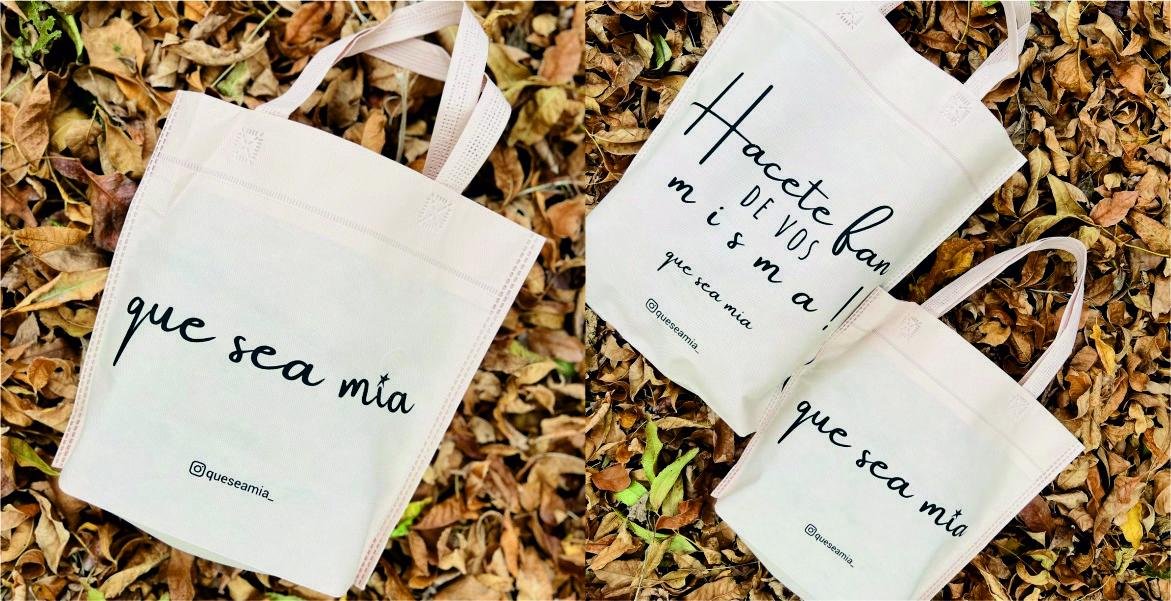 que sea mia
queseamia_
Hacete fan
DE VOS
misma!
que sea mia
queseamia_
que sea mia
queseamia_